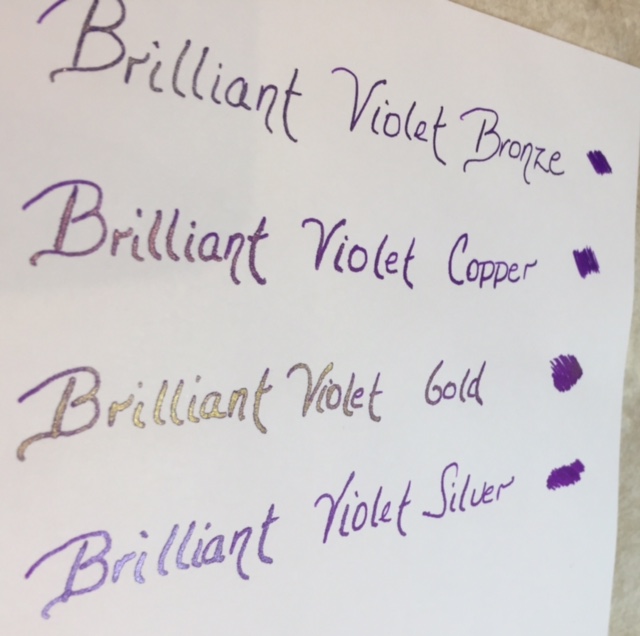 Brilliant Violet Bronze
Brilliant Violet Copper
Brilliant Violet Gold
Brilliant Violet Silver